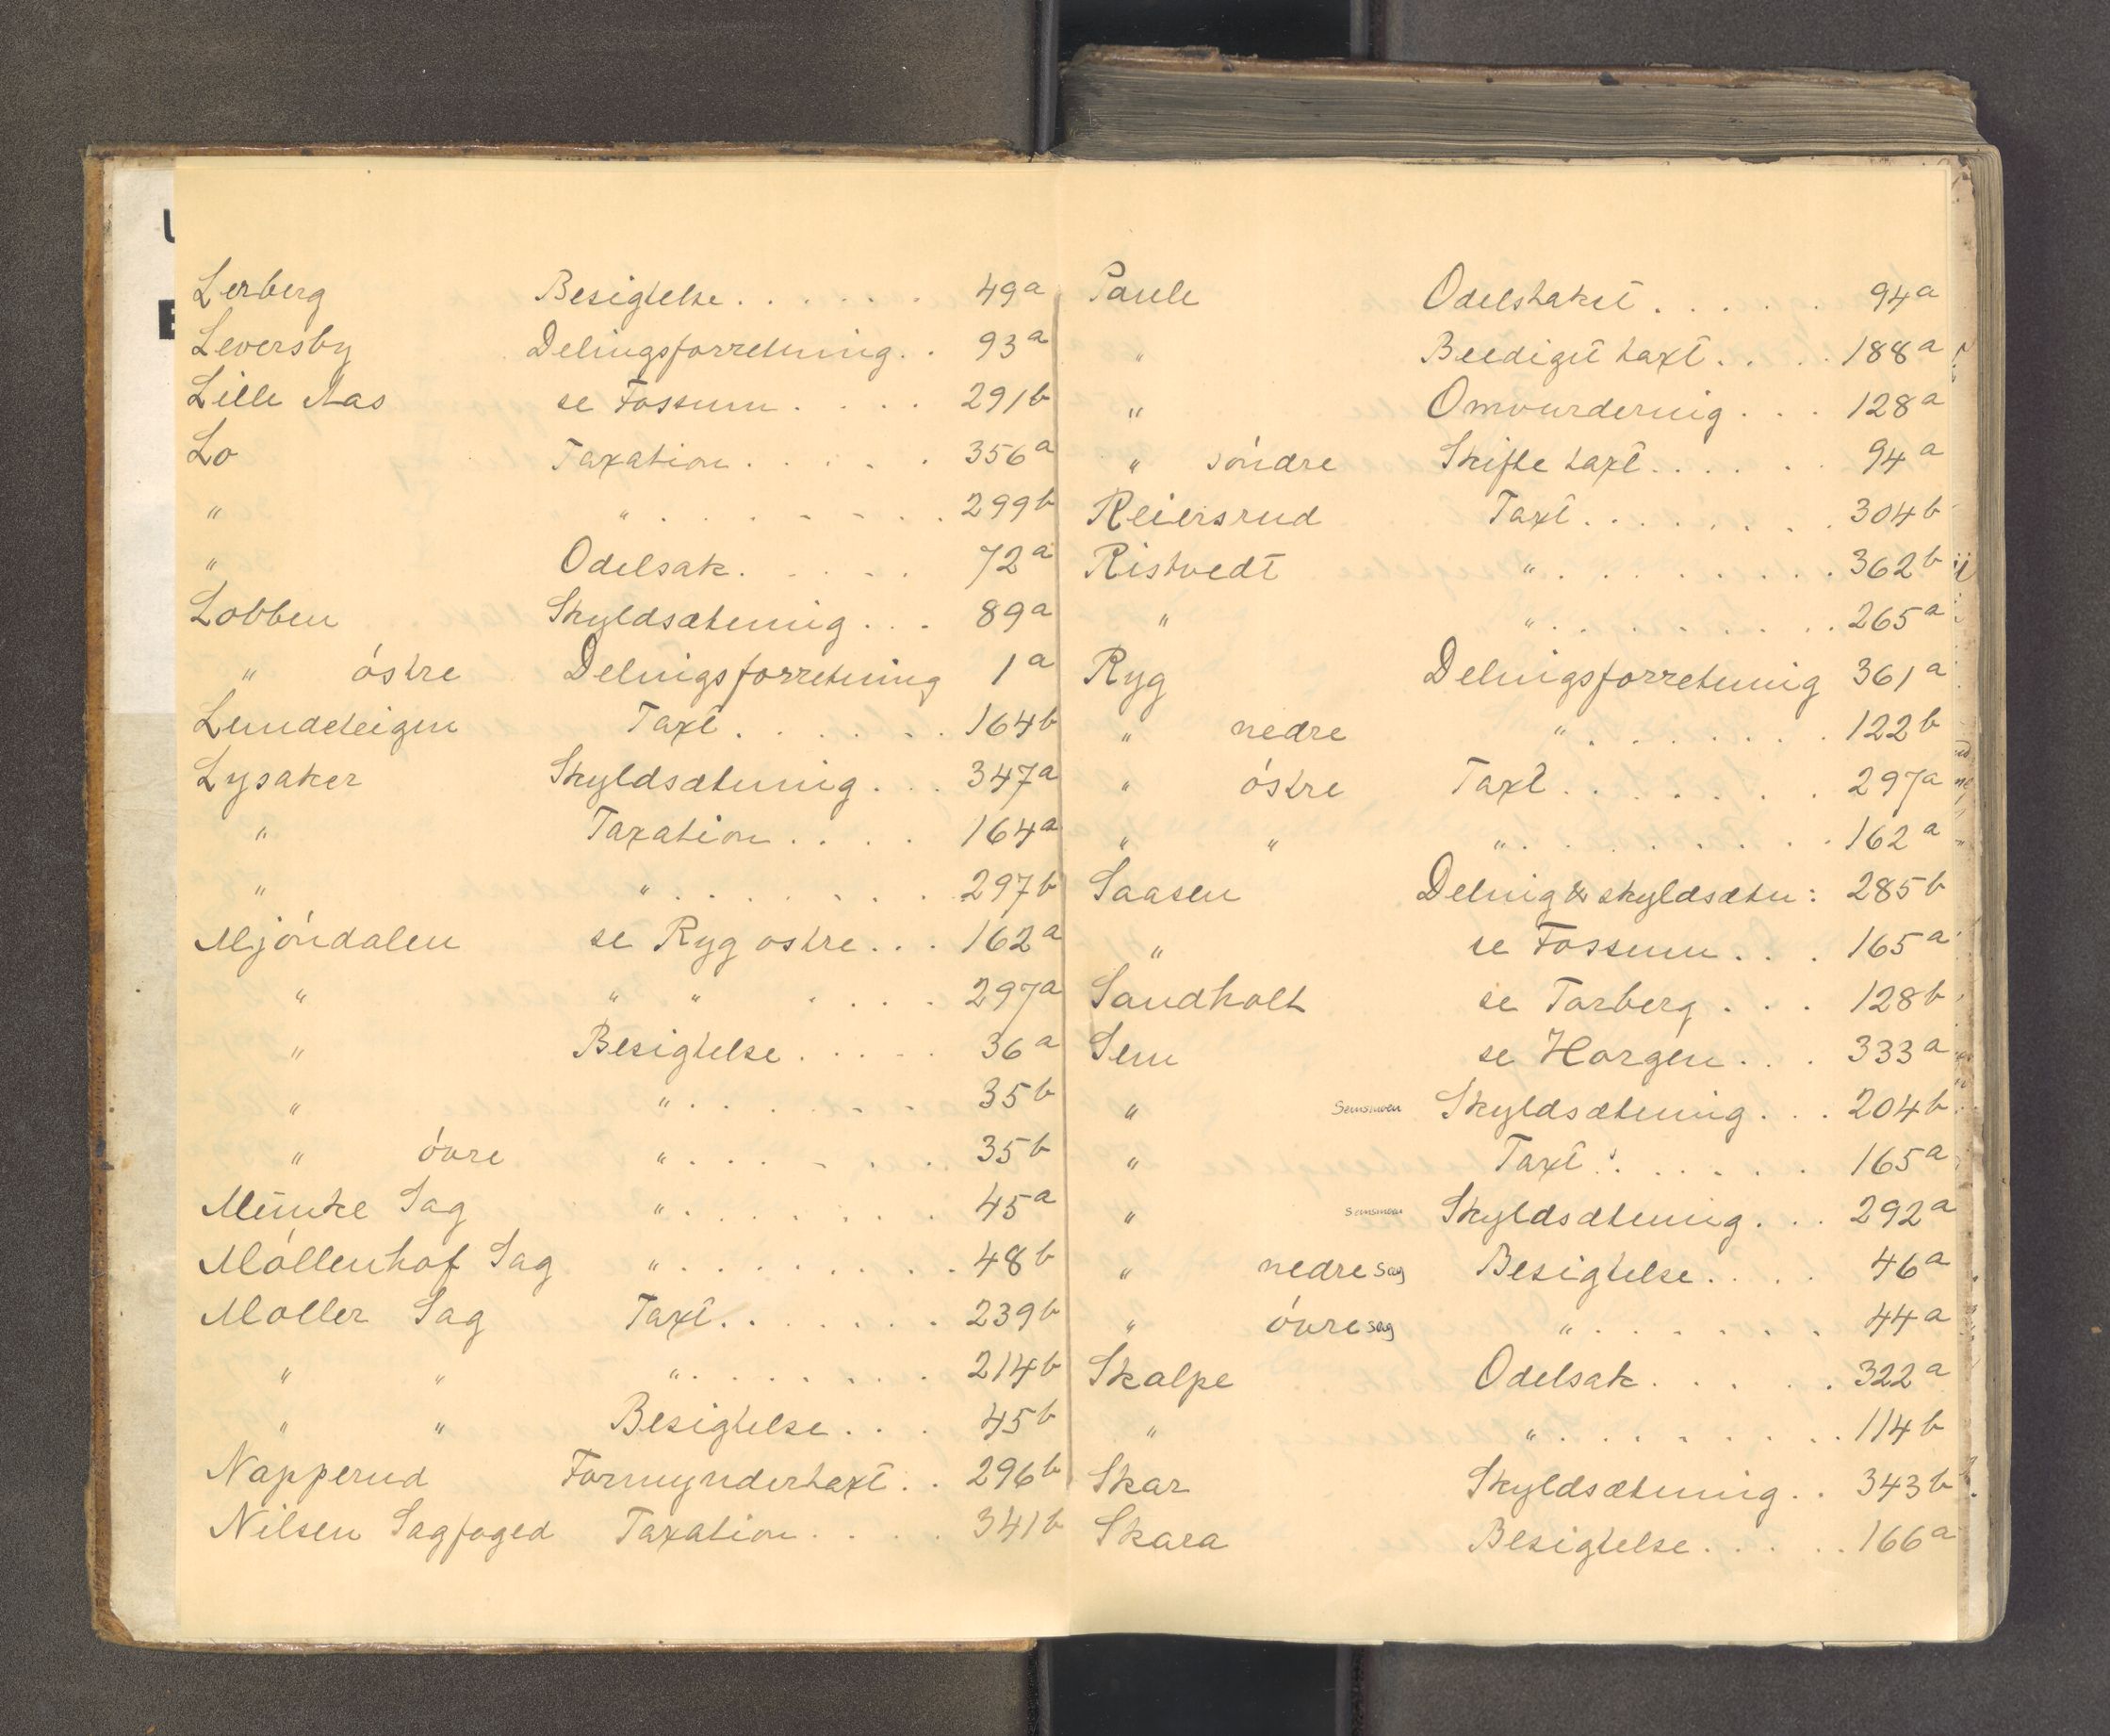 Lerberg Besigtelse . . . . . . 49a
Leversby Delingsforretning . . 93a
Lille Aas se Fossum . . . . 291b
Lo Taxation . . . . . 356a
" " . . . . . . . . 299b
" Odelsak . . . . . 72a
Lobben Skyldsætning . . . 89a
" östre Delingsforretning 1a
Lundeteigen Taxt . . . . . . 164b
Lysaker Skyldsætning . . . 347a
" Taxation . . . . 164a
" " . . . . . . . . 297b
Mjöndalen se Ryg ostre . . . 162a
" " " . . . . 297a
" Besigtelse . . . . . 36a
" " . . . . . . . 35b
" övre " . . . . . . . 35b
Munke Sag " . . . . . . . . 45a
Möllenhof Sag " . . . . . . . . . 48b
Moller Sag Taxt . . . . . . . 239b
" " " . . . . . . . . 214b
" " Besigtelse . . . 45b
Napperud Formyndertaxt . . 296b
Nilsen Sagfoged Taxation . . . . 341b
Paule Odelstakst . . . . . 94a
" Beediget taxt . . . . 188a
" Omvurdering . . . 128a
" söndre Skifte taxt . . . . . 94a
Reiersrud Taxt . . . . . . . . 304b
Ristvedt " . . . . . . . . . 362b
" " . . . . . . . . . 265a
Ryg Delingsforretning 361a
" nedre " . . . . . . . 122b
" östre Taxt . . . . . . . 297a
" " " . . . . . . . . . 162a
Saasen Deling & skyldsætn : 285b
" se Fossum . . . 165a
Sandholt se Torberg . . . 128b
Sem se Horgen . . . 333a
" Semsmoen Skyldsætning . . . 204b
" Taxt . . . . . . . 165a
" Semsmoen Skyldsætning . . . 292a
" nedre sag Besigtelse . . . . 46a
" övre sag " . . . . . . . 44a
Skalpe Odelsak . . . . . 322a
" " . . . . . . . . . 114b
Skar Skyldsætning . . 343b
Skara Besigtelse . . . . . 166a